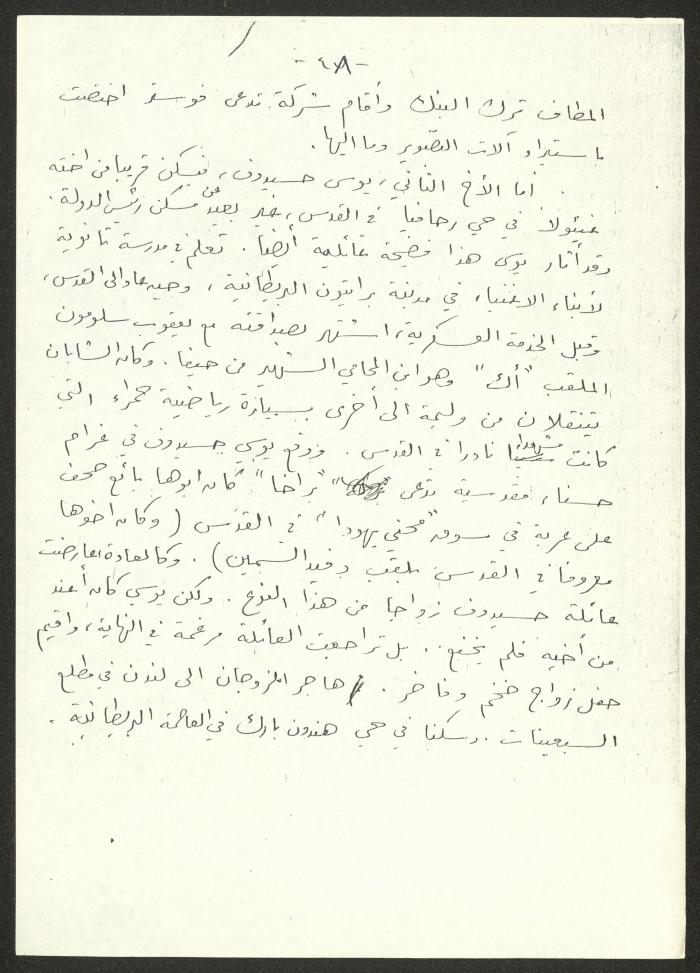 - ٤٨ -
المطاف ترك البنك وأقام شركة تدعى فوستر اختصت
باستيراد آلات التصوير وما اليها.
اما الأخ الثاني، يوسي حسيدوف، فيسكن قريبا من اخته
في حي رحافيا في القدس، غير بعيد عن مسكن رئيس الدولة.
وقد أثار يوسي هذا فضيحة عائلية أيضا. تعلم في مدرسة ثانوية
لأبناء الاغنياء في مدينة برايتون البريطانية، وحين عاد الى القدس،
وقبل الخدمة العسكرية، اشتهر بصداقته مع يعقوب سلومون
الملقب "أك" وهو ابن المحامي الشهير من حيفا. وكان الشابان
يتنقلان من وليمة الى أخرى بسيارة رياضية حمراء التي
كانت مشهدا نادرا في القدس. ووقع يوسي حسيدوف في غرام
حسناء مقدسية تدعى "براخا" كان ابوها بائع صحف
على عربة في سوق "محني يهودا" في القدس (وكان اخوها
معروفا في القدس بلقب دفيد السمين). وكالعادة عارضت
عائلة حسيدوف زواجا من هذا النوع. ولكن يوسي كان أعند
من أخيه فلم يخنع.. بل تراجعت العائلة مرغمة في النهاية، واقيم
حفل زواج ضخم وفاخر. هاجر الزوجان الى لندن في مطلع
السبعينات. وسكنا في حي هندون بارك في العاصمة البريطانية.